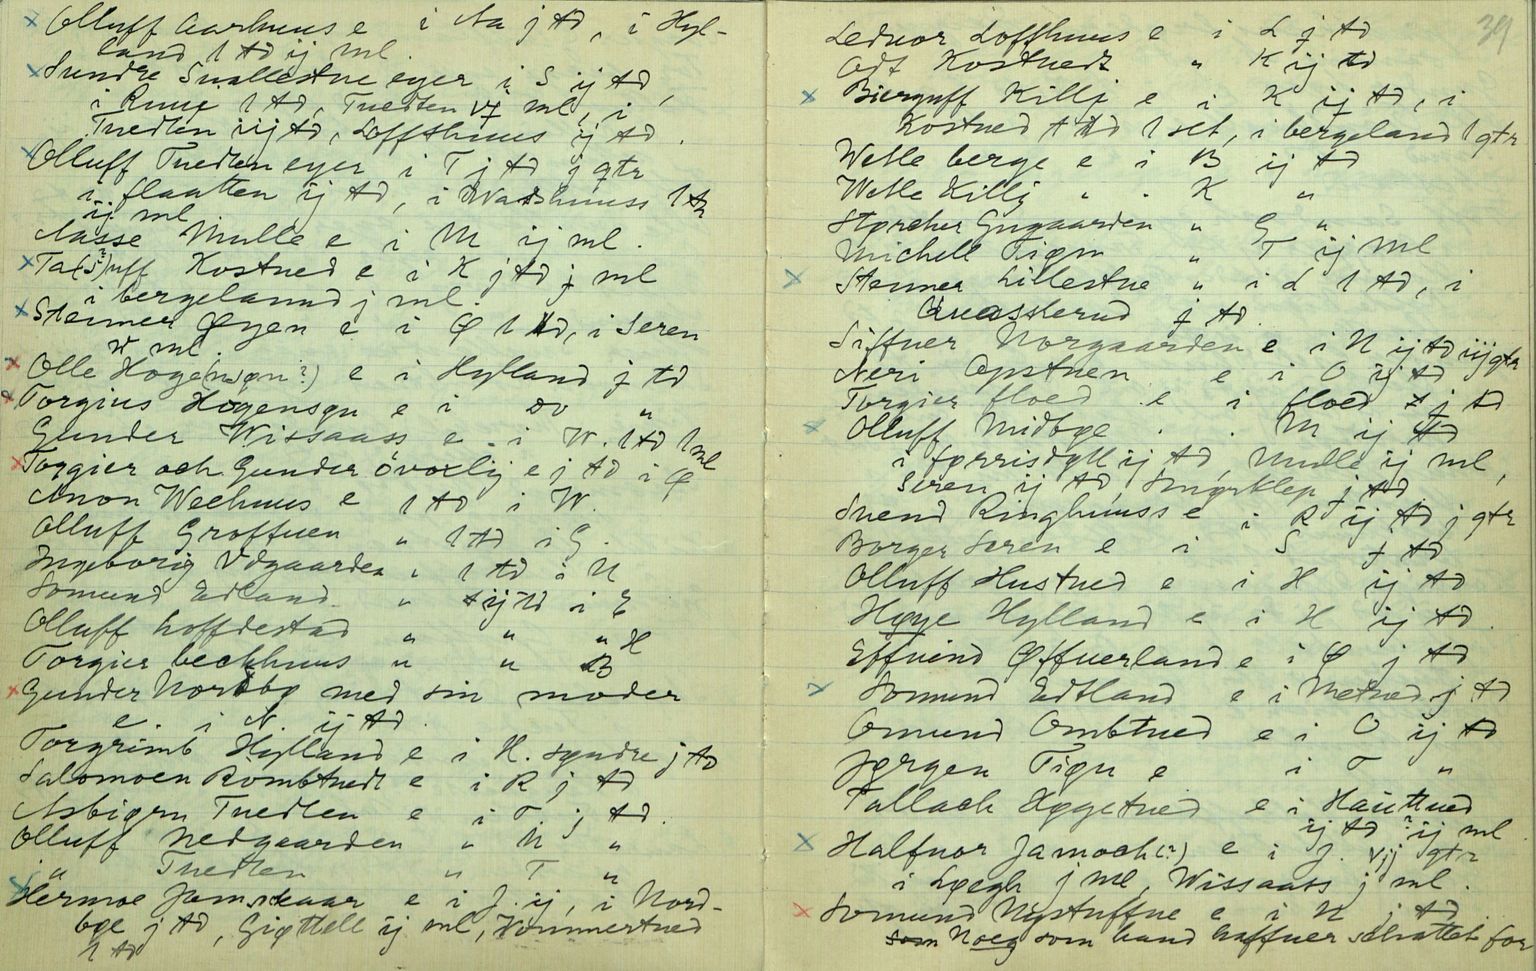 Olluff Aarhuus e i Aa j td, i Hyl-
land 1 td ij ml.
Sundre Snallestue eyer i S ij td,
i Ruue 1 td, Tuedten vj ml, i
Tuedten iij td, Loffthuus ij td.
Olluff Tuedten eyer i T j td j qtr
i flaatten ij td, i Wadshuuss 1 td
ij ml
Aasse Mulle e i M ij ml.
Ta(s?)uff Kostued e i K j td j ml
i bergelannd j ml.
Steimer Øyen e i Ø 1 td, i Seren
ml.
Olle Hoge(nsøn?) e i Hylland j td
Torgius Hogensøn e i do "
Gunder Wissaass e i W. 1 td 1 ml
Torgier och Gunder øvoxlig e j td i Ø
Anon Weehuus e 1 td i W.
Olluff Groffuen " 1 td i G.
Ingeborig Udgaarden " 1 td i U
Somund Edland " ij td i E
Olluff hoffdestad " " " H
Torgier beckhuus " " B
Gunder Nordbø med sin moder
e. i N. ij td.
Torgrimb Hylland e i H. syndre j td
Salomoen Rombtuedt e i R j td
Asbiørn Tuedten e i T. j td.
Olluff Nedgaarden " N "
" Tuedten " T "
Hermoe Jamskaar e i J. ij, i Nord-
bøe j td, Giøttell ij ml, Wimmertued
1 td
39
Leduor Loffthuus e i L j td
Odt Kostuedt " K ij td
Bierguff Killj e i K ij td, i
Kostued 1 td 1 set, i bergeland 1 qtr
Wetle berge e i B ij td
Wetle Killj " . K "
Størcher Gugaarden " G "
Michell Tiøn " T ij ml
Steimer Lillestue " i L 1 td, i
Quasslerud j td.
Siffuer Norgaarden e i N ij td iij qtr
Neri Opstuen e i O ij td
Torgier floed e i floed j td
Olluff Midbøe . . M ij td
i førrisdall ij td, Mulle ij ml,
Seren ij td, j td.
Suend Ringhuuss e i R ij td j qtr
Borger Seren e i S j td
Olluff Hustued e i H ij td
Høye Hylland e i H ij td.
Effuind Øffuerland e i Ø j td
Somund Edtland e i Metued j td
Omund Ombtued e i O ij td
Jørgen Tiøn e i T "
Tallach Høgetued e i Hauttued
ij td ? ij ml
Halfuor Jamoch(?) e i J. vij qtr
i Løegh j ml, Wissaass j ml.
Somund Nystuffue e i N j td
som Noeg som hand haffuer schattet for